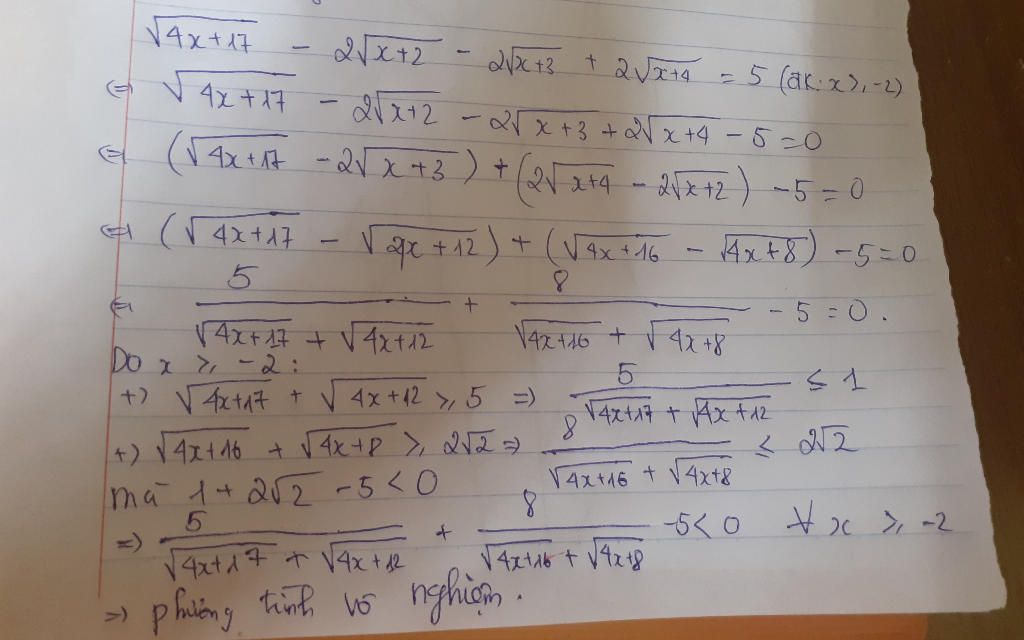 √4x+17 - 2√x+2 - 2√x+3 + 2√x+4 = 5 (đk: x ≥ -2)
⇔ √4x+17 - 2√x+2 - 2√x+3 + 2√x+4 - 5 = 0
⇔ (√4x+17 - 2√x+3) + (2√x+4 - 2√x+2) - 5 = 0
⇔ (√4x+17 - √4x+12) + (√4x+16 - √4x+8) - 5 = 0
⇔ 5/(√4x+17 + √4x+12) + 8/(√4x+16 + √4x+8) - 5 = 0.
Do x ≥ -2:
+) √4x+17 + √4x+12 ≥ 5 => 5/(√4x+17 + √4x+12) ≤ 1
+) √4x+16 + √4x+8 ≥ 2√2 => 8/(√4x+16 + √4x+8) ≤ 2√2
mà 1 + 2√2 - 5 < 0
=> 5/(√4x+17 + √4x+12) + 8/(√4x+16 + √4x+8) - 5 < 0 ∀ x ≥ -2
=> phương tình vô nghiệm.